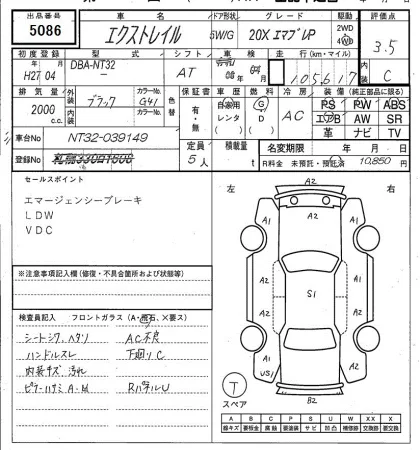 出品番号 車名 ドア形状 グレード 駆動 評価点
5086 エクストレイル 5W/G 20X エマブレP 2WD 4WD 3.5
初度登録 型式 シフト 車検 走行(km・マイル) 内装
H27 04 DBA-NT32 AT 105617 C
排気量 外装 カラーNo. 色替 保証書 車歴 燃料 冷房 装備(純正部品に限る)
2000 c.c. ブラック G41 有・無 自家用 レンタ G D AC PS PW ABS
内装 カラーNo. エアB AW SR
車台No NT32-039149 革 ナビ TV
登録No 定員 5人 積載量 t 名変期限 年 月 日
R料金 未預託・預託済 10,850 円
セールスポイント
エマージェンシーブレーキ
LDW
VDC
左 右
A2
A1 A1
A2 A2
S1
A2 A2
A1 A1
US1
B2
T
スペア
※注意事項記入欄(修復・不具合箇所および状態等)
検査員記入 フロントガラス(A・飛石、×要ス)
シートシワ、ヘタリ AC不良
ハンドルスレ 下回りC
内装キズ 汚れ
A B C P S U W X XX
線キズ 要板金 腐蝕 要塗装 サビ 凹凸 補修跡 交換跡 要交換